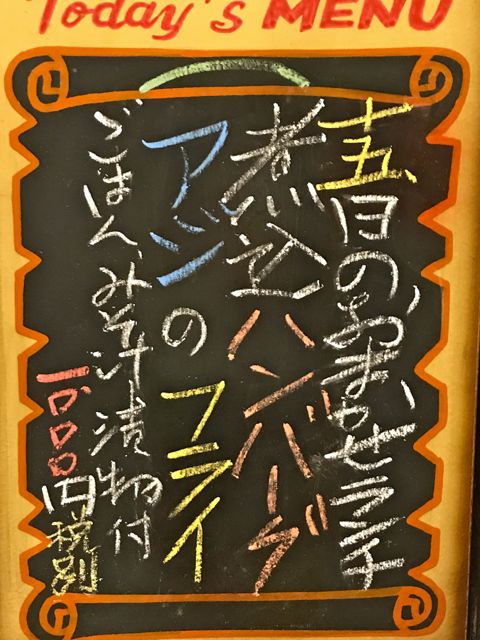 Today's MENU
十五日のおまかせランチ
煮込ハンバーグ
アジのフライ
ごはん、みそ汁漬物付
一〇〇〇円税別